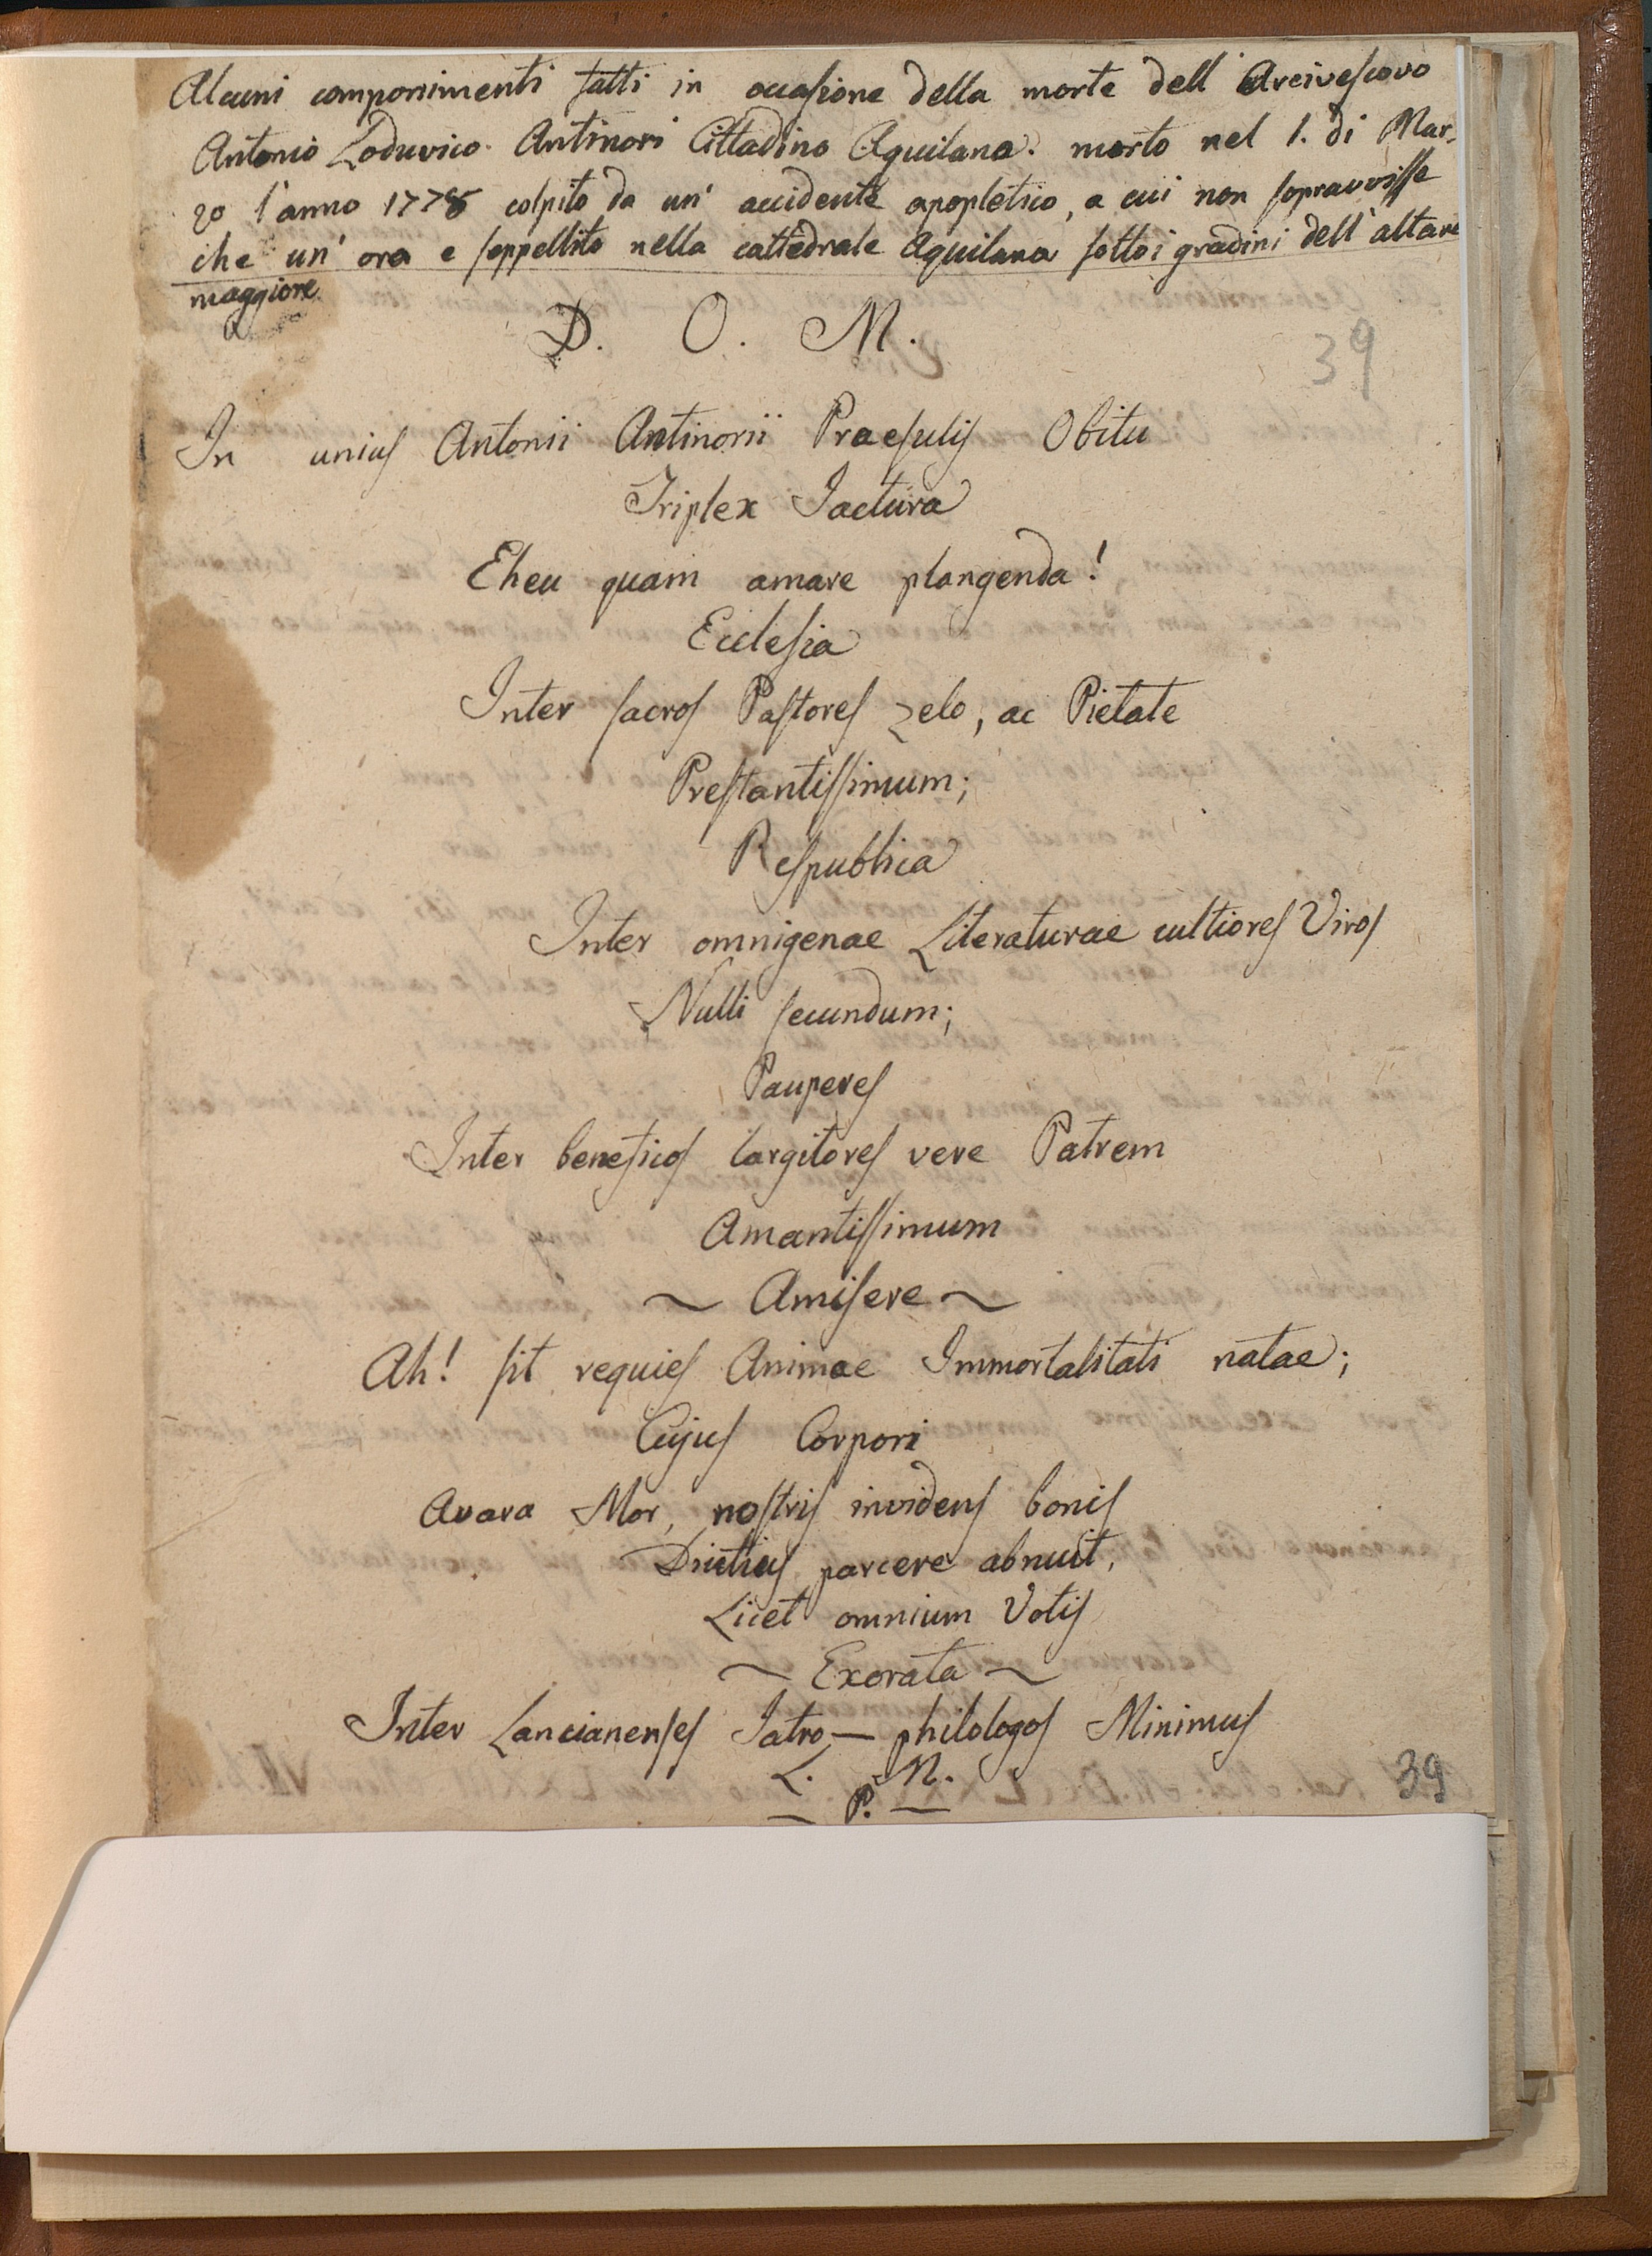 Alcuni componimenti fatti in occasione della morte dell' Arcivescovo
Antonio Loduvico. Antinori Cittadino Aquilano. morto nel 1. di Mar-
zo l'anno 1778 colpito da un' accidente apopletico, a cui non sopravvisse
che un' ora e seppellito nella cattedrale Aquilana sotto i gradini dell' altare
maggiore
D. O. M.
39
In unius Antonii Antinorii Praesulis Obitu
Triplex Jactura
Eheu quam amare plangenda!
Ecclesia
Inter sacros Pastores zelo, ac Pietate
Prestantissimum;
Respublica
Inter omnigenae Literaturae cultiores Viros
Nulli secundum;
Pauperes
Inter beneficos largitores vere Patrem
Amantissimum
~ Amisere ~
Ah! sit requies Animae Immortalitati natae;
Cujus Corpori
Avara Mor, nostris invidens bonis
Diutius parcere abnuit,
Licet omnium Votis
~ Exorata ~
Inter Lancianenses Jatro — philologos Minimus
L. N.
— P. —
39